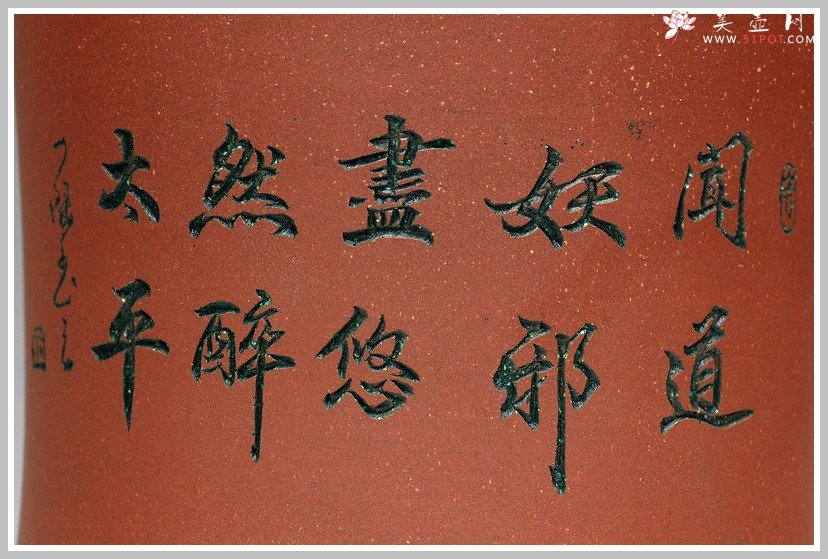 聞道
妖邪
盡悠
然醉
太平
美壶网
WWW.51POT.COM